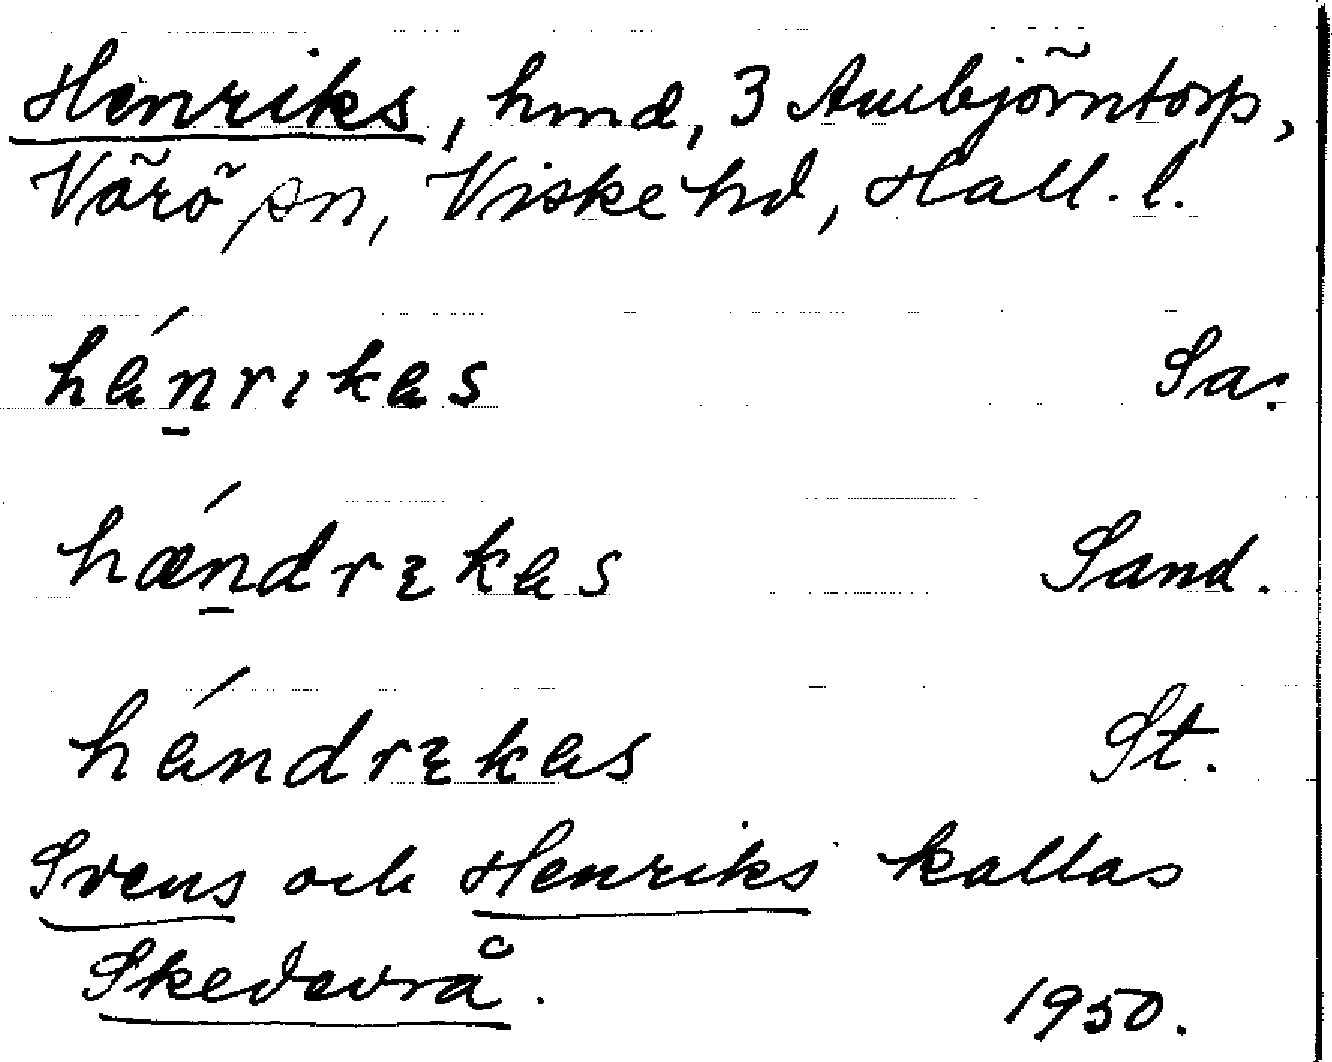 Henriks, hmd, 3 Ambjörntorp,
Värö sn, Viske hd, Hall. l.
hénrıkas Sa.
hændrıkas Sand.
héndrıkas St.
Svens och Henriks kallas
Skedevrå.
1950.